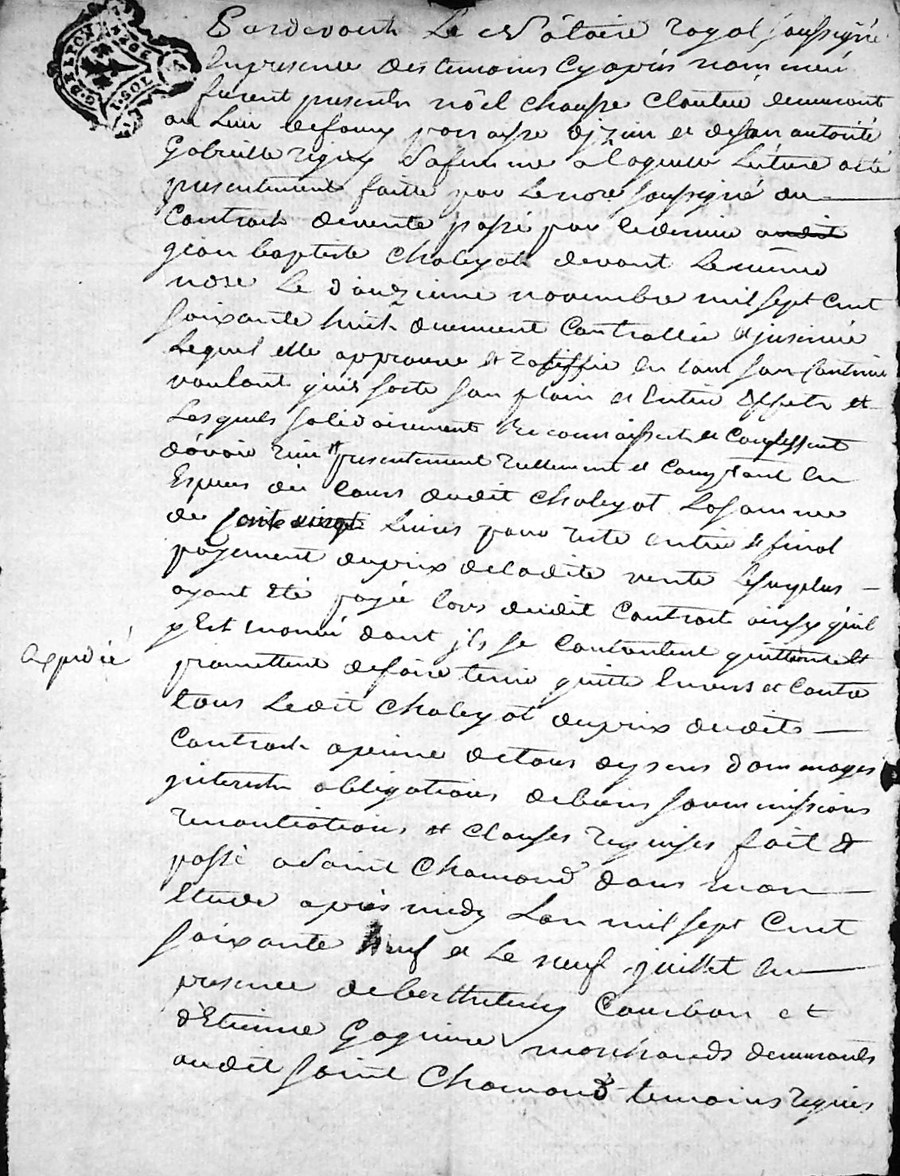 Pardevant Le Nôtaire royal soussigné
En presence des temoins Cy après nommés
furent presents nôel chausse cloutier demeurant
au Lieu
Gabrielle sa femme a laquelle Lecture acté
presentement faitte par Le nore soussigné du
Contract de vente passé par le dernier audit
jean baptiste Chaleyat devant Le même
nore Le douzieme novembre mil sept cent
soixante huit duement Controllée et insinué
Lequel elle approuve et ratiffie en tout son contenu
voulant qu'il sorte son plain et Entier Effett et
Lesquels solidairement Reconnaissent et confessent
d'avoir presentement reellement et comptant en
Especes du cours dudit Chaleyat La somme
de cent vingt Livres pour reste entier et final
payement du prix de la dite vente Le surplus
ayant Eté payé lors dudit Contract ainsy qu'il
y Est dont jls se Contentent quittent et
promettent de faire tenir quitte Envers et Contre
tous Ledit Chaleyat du prix dudit
Contract a peine de tous depens dommages
jnterests obligations de biens soummissions
renontiations et clauses requises fait et
passé a Saint Chamond dans mon
Etude après midy L'an mil sept Cent
soixante Neuf et Le neuf juillet En
presence de berthelemy Courbon et
d'Etienne marchands demeurants
audit Saint Chamond temoins requis
expedié